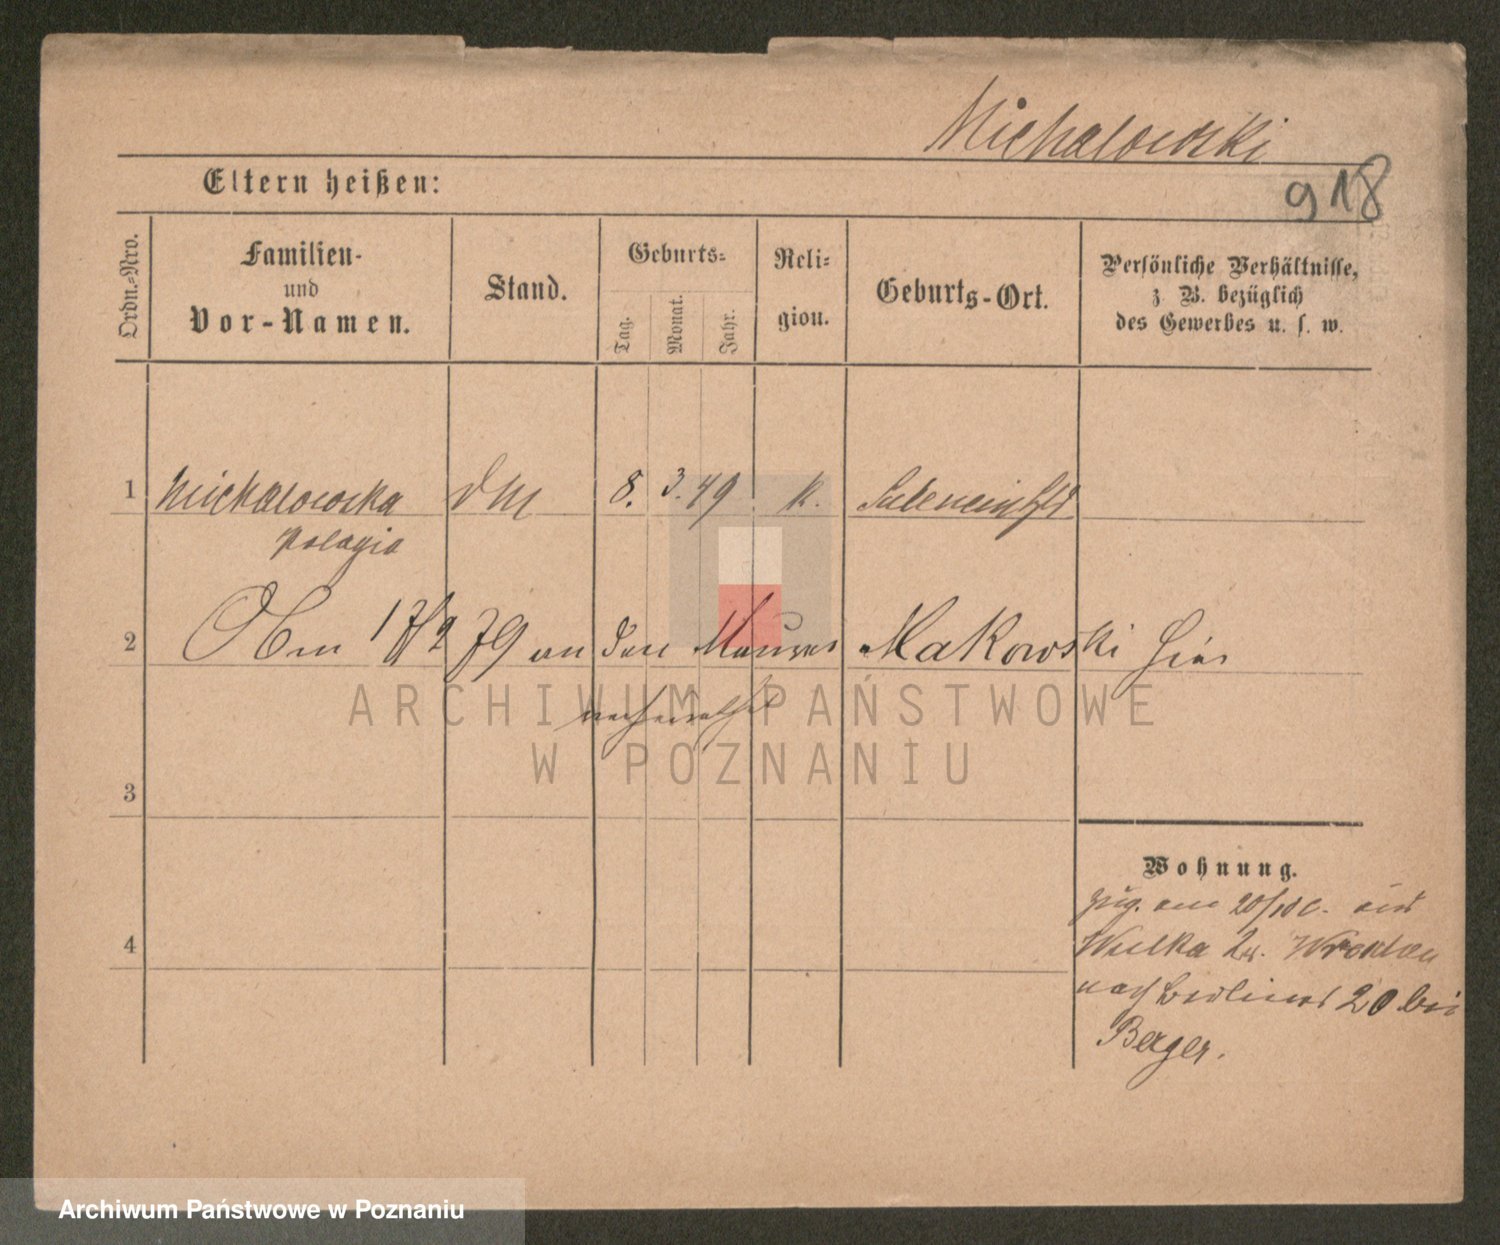 Michalowski
918
Eltern heißen:
Ordn.-Nro.
Familien-
und
Vor-Namen.
Stand.
Geburts-
Tag.
Monat.
Jahr.
Reli-
gion.
Geburts-Ort.
Persönliche Verhältnisse,
z. B. bezüglich
des Gewerbes u. s. w.
1 Michalowska 8. 3. 49 K.
Pelagia
2 79 an den Maurer Makowski hier
verheirathet
3
Wohnung.
zug. am
Wielka
nach Berliner 20 bei
Berger.
4
ARCHIWUM PAŃSTWOWE
W POZNANIU
Archiwum Państwowe w Poznaniu